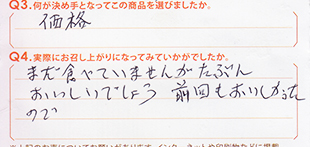 Q3.何が決め手となってこの商品を選びましたか。
価格
Q4.実際にお召し上がりになってみていかがでしたか。
まだ食べていませんがたぶん
おいしいでしょう 前回もおいしかった
ので